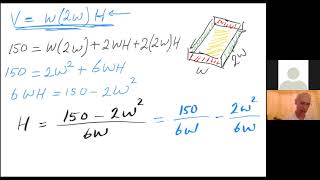 V = W(2W) H ←
150 = W(2W) + 2WH + 2(2W)H
W
2W
150 = 2W² + 6WH
6WH = 150 - 2W²
H = (150 - 2W²)/(6W) = 150/(6W) - 2W²/(6W)